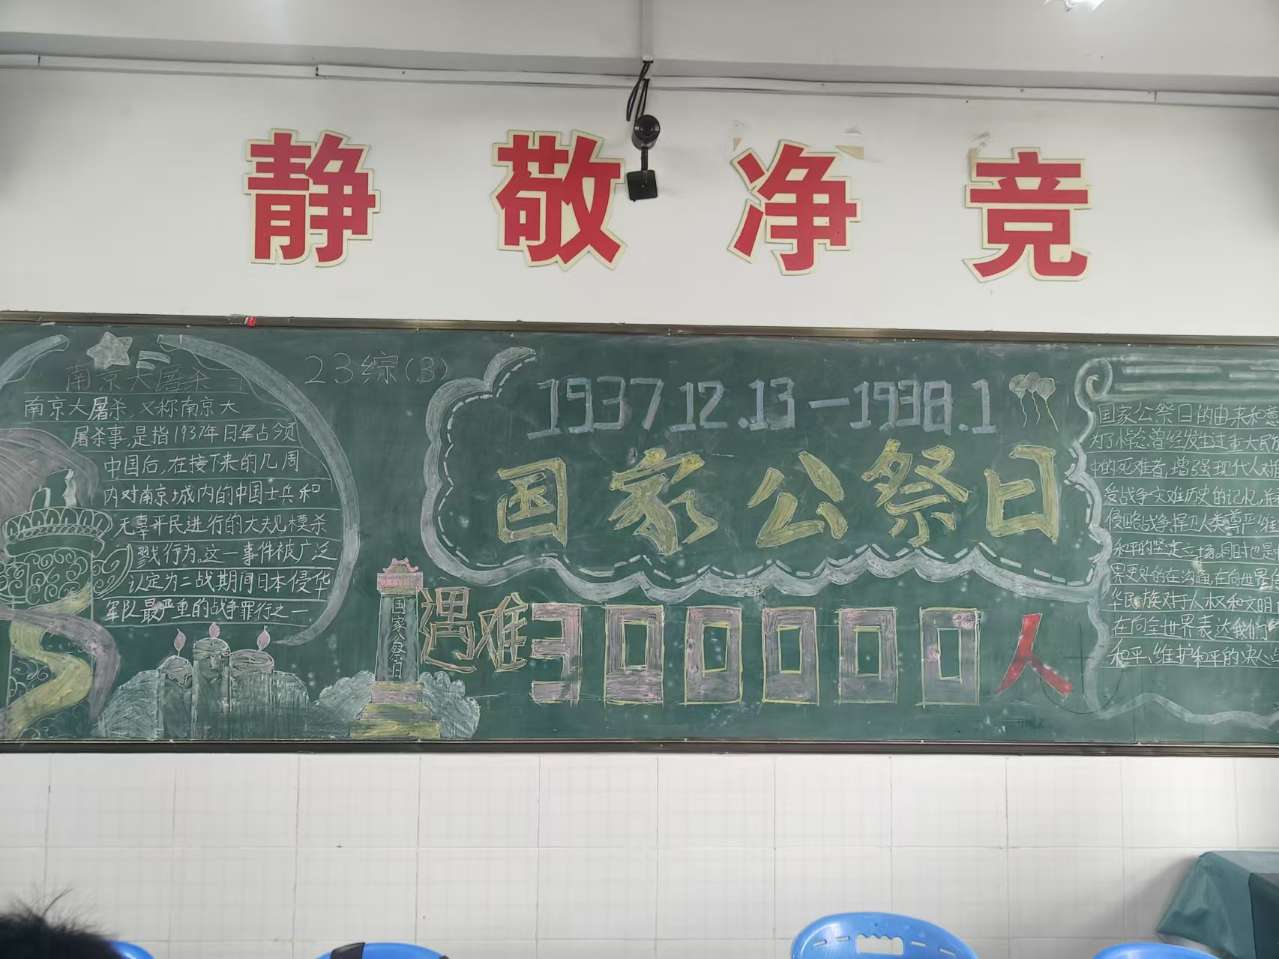 静敬净竞
23综(3)
南京大屠杀
南京大屠杀,又称南京大
屠杀事,是指1937年日军占领
中国后,在接下来的几周
内对南京城内的中国士兵和
无辜平民进行的大规模杀
戮行为,这一事件被广泛
认定为二战期间日本侵华
军队最严重的战争罪行之一
1937.12.13—1938.1
国家公祭日
国家公祭日
遇难300000人
国家公祭日的由来和意
为了悼念曾经发生过重大
中的死难者,增强现代人对
爱战争灾难历史的记忆,
侵略战争捍卫人类尊严维
和平的坚定立场,同时也是
果更好的在沟通,在向世界
华民族对于人权和文明
在向全世界表达我们
和平、维护和平的决心